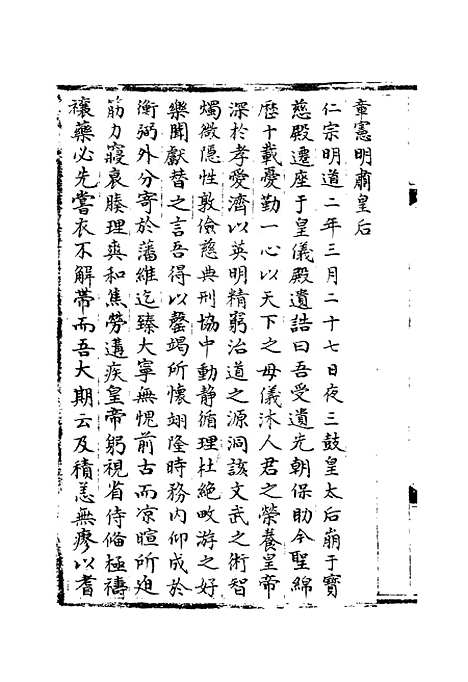 章憲明肅皇后
仁宗明道二年三月二十七日夜三鼓皇太后崩于寶
慈殿遷座于皇儀殿遺誥曰吾受遺先朝保助今聖綿
歷十載憂勤一心以天下之母儀沐人君之榮養皇帝
深於孝愛濟以英明精窮治道之源洞該文武之術智
燭微隱性敦儉慈典刑協中動静循理杜絶畋游之好
樂聞獻替之言吾得以罄竭所懷翊隆時務内仰成於
衡弼外分寄於藩維迄臻大寧無愧前古而凉暄所迫
筋力寢衰腠理爽和焦勞遘疾皇帝躬視省侍俻極禱
禳藥必先嘗衣不解帶而吾大期云及積恙無瘳以耆